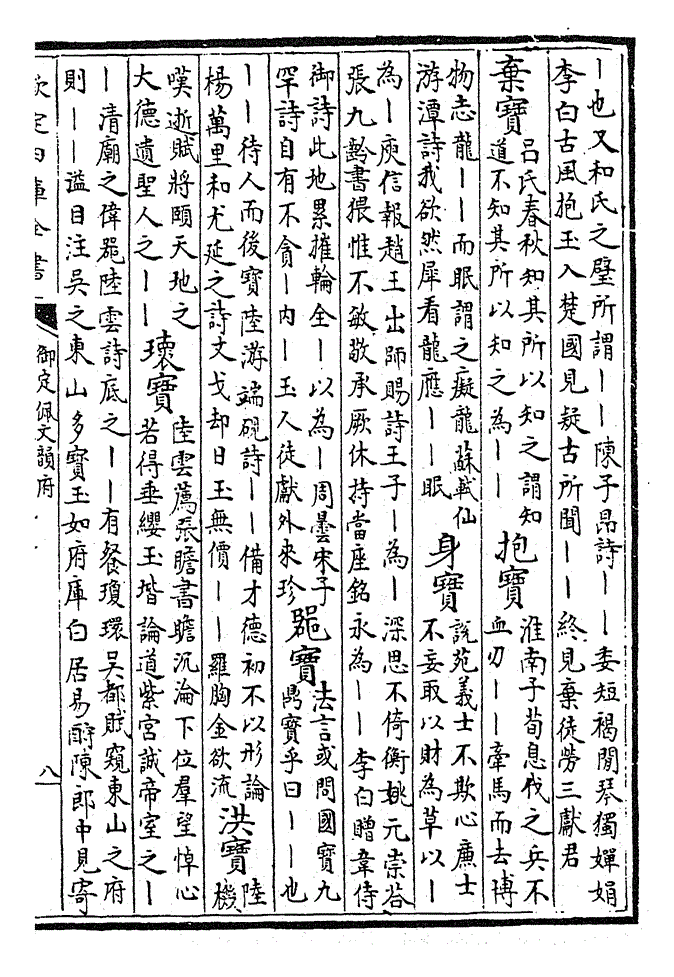 ｜也又和氏之璧所謂｜｜陳子昂詩｜｜委短褐閒琴獨嬋娟
李白古風抱玉入楚國見疑古所聞｜｜終見棄徒勞三獻君
棄寶
呂氏春秋知其所以知之謂知
道不知其所以知之為｜｜
抱寶
淮南子荀息伐之兵不
血刃｜｜牽馬而去
博
物志龍｜｜而眠謂之癡龍蘇軾仙
游潭詩我欲然犀看龍應｜｜眠
身寶
說苑義士不欺心廉士
不妄取以財為草以｜
為｜庾信報趙王出師賜詩王子｜為｜深思不倚衡姚元崇荅
張九齡書猥惟不敏敬承厥休持當座銘永為｜｜李白贈韋侍
御詩此地累擁輪全｜以為｜周曇宋子
罕詩自有不貪｜內｜玉人徒獻外來珍
器寶
法言或問國寶九
鼎寶乎曰｜｜也
｜｜待人而後寶陸游端硯詩｜｜備才德初不以形論
楊萬里和尤延之詩文戈却日玉無價｜｜羅胸金欲流
洪寶
陸
機
嘆逝賦將頤天地之
大德遺聖人之｜｜
瓌寶
陸雲薦張贍書贍沉淪下位羣望悼心
若得垂纓玉堦論道紫宮誠帝室之｜
｜清廟之偉器陸雲詩底之｜｜有餐瓊環吳都賦窺東山之府
則｜｜溢目注吳之東山多寶玉如府庫白居易酹陳郎中見寄
欽定四庫全書
御定佩文韻府
八